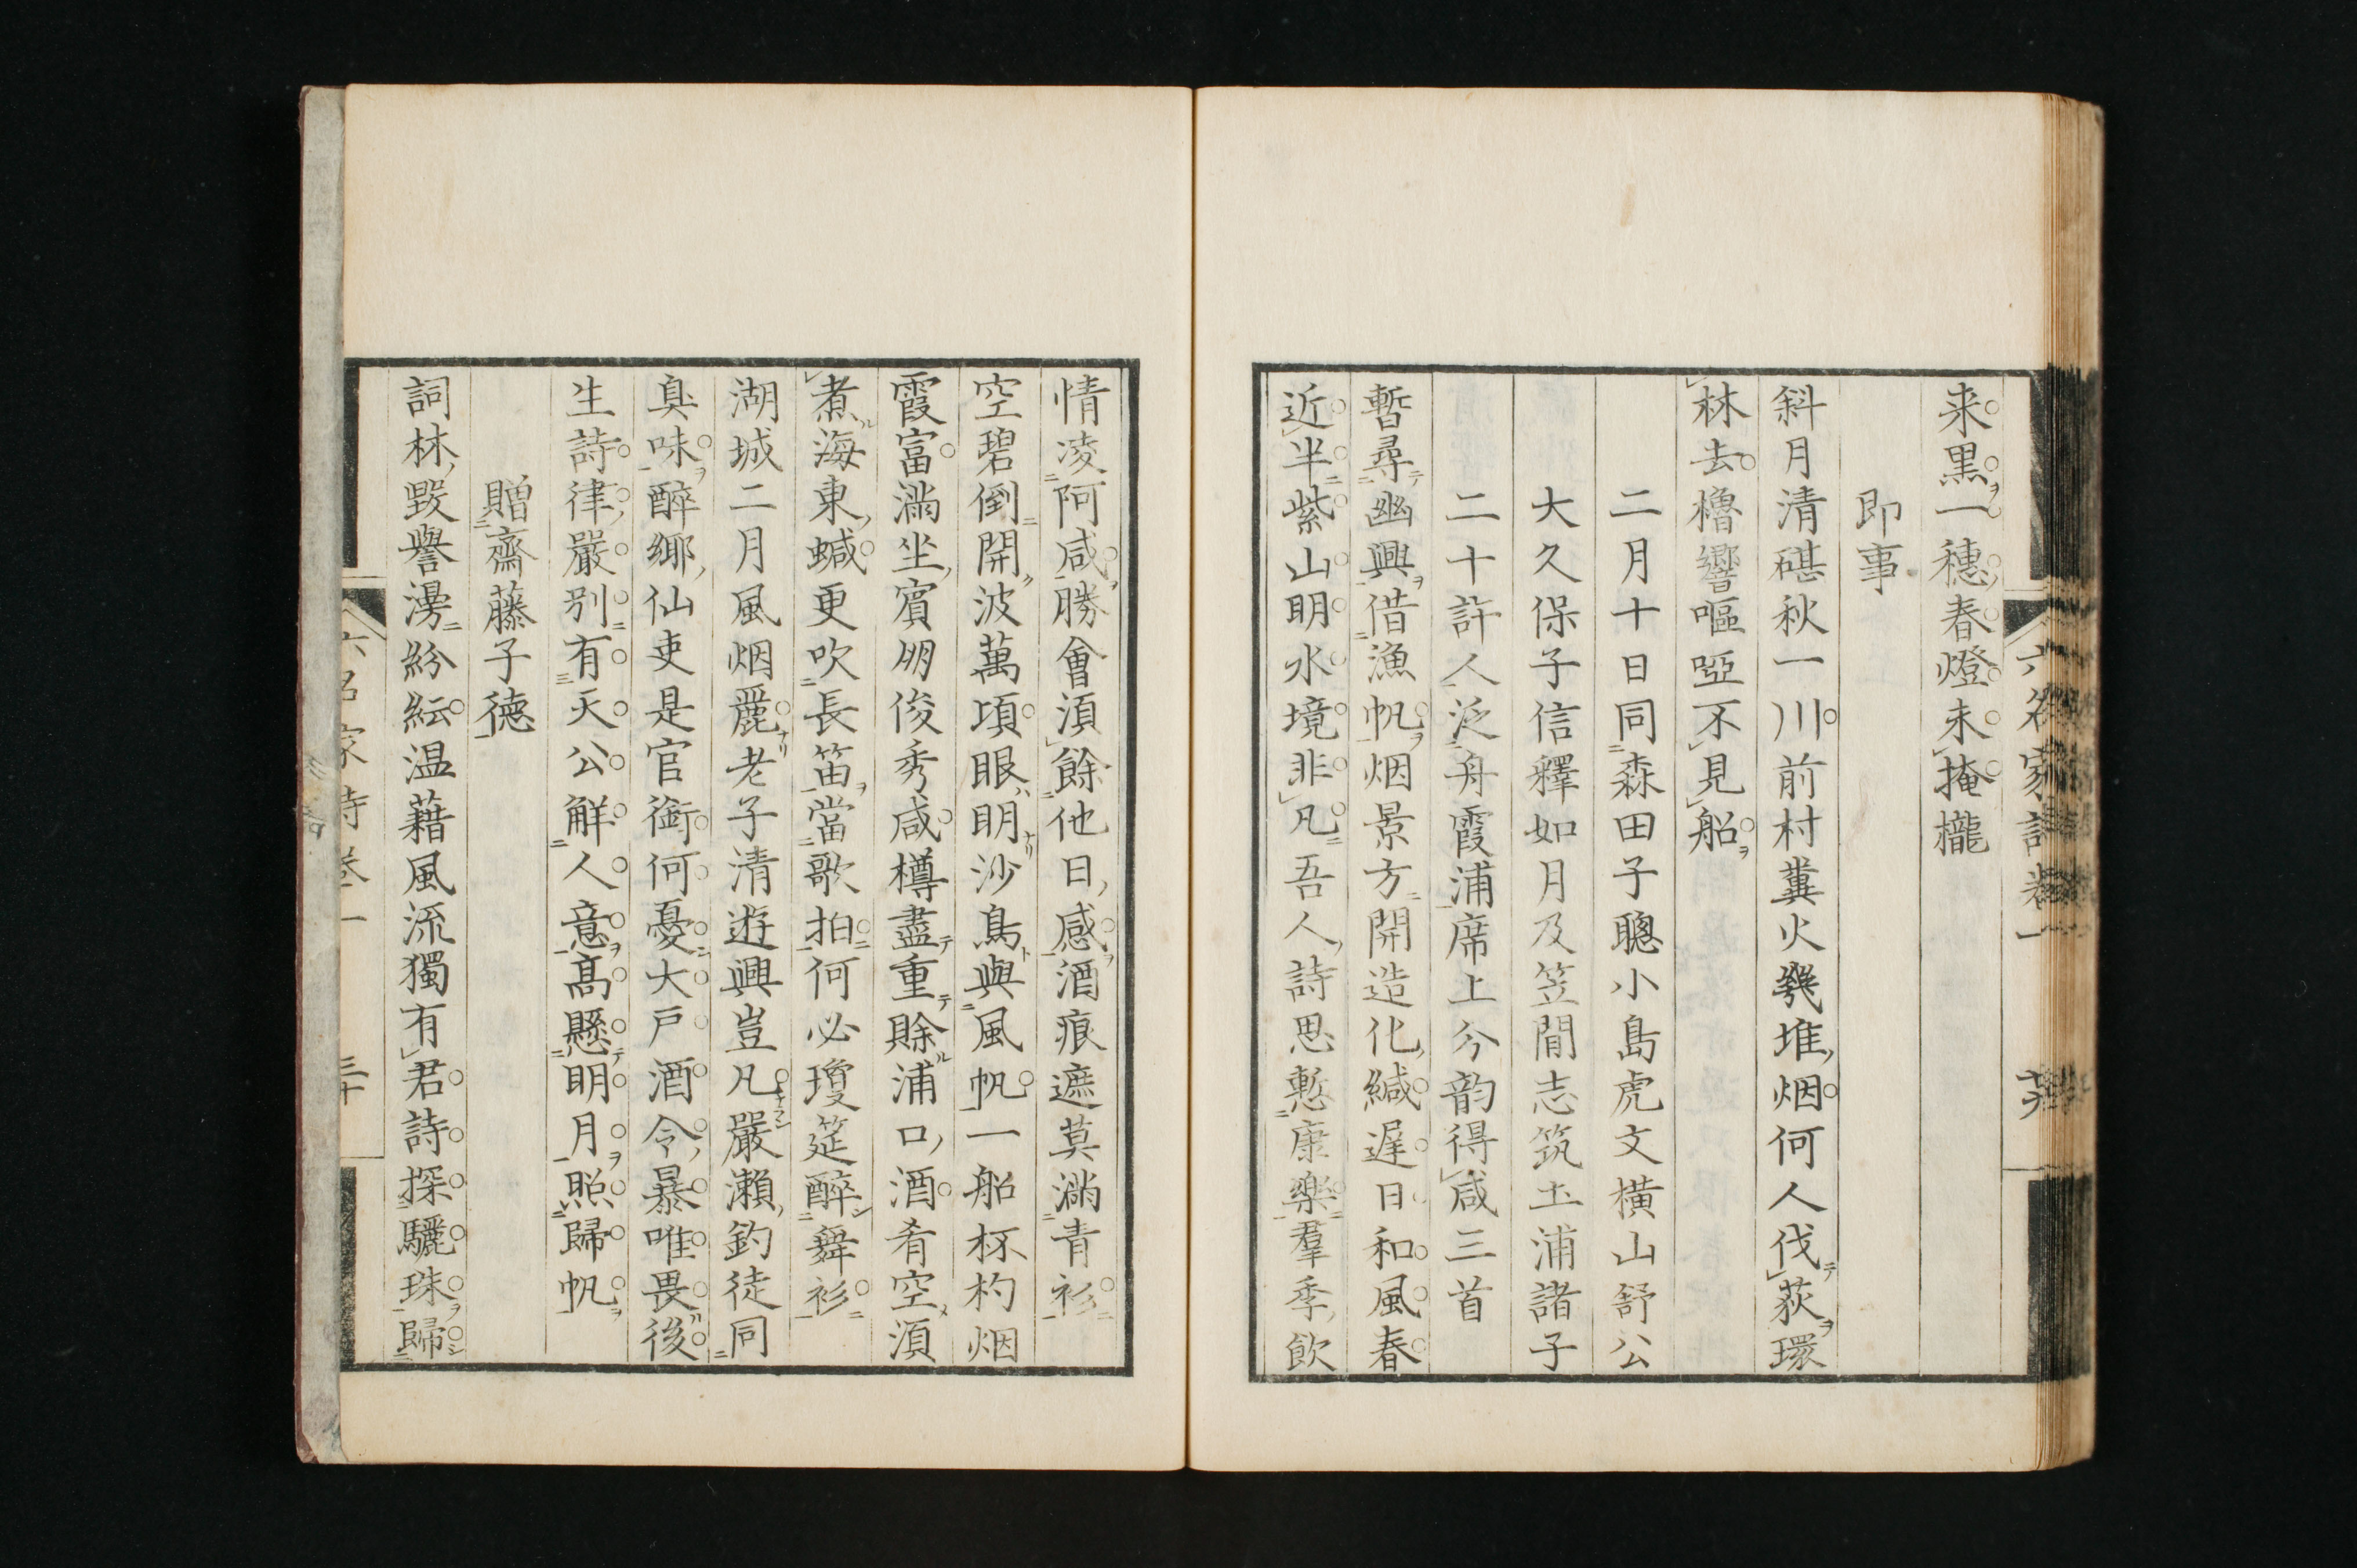 来黒一穗春燈未掩櫳
即事
斜月清碪秋一川前村糞火幾堆烟何人伐荻環
林去櫓響嘔啞不見船
二月十日同森田子聰小島虎文横山舒公
大久保子信釋如月及笠間志筑土浦諸子
二十許人泛舟霞浦席上今韵得咸三首
暫尋幽興借漁帆烟景方開造化緘遅日和風春
近半紫山明水境非凡吾人詩思慙康樂羣季飲
情凌阿咸勝會須餘他日感酒痕遮莫滿青衫
空碧倒開波萬項眼明沙鳥與風帆一船杯杓烟
霞富滿坐賓朋俊秀咸樽盡重賖浦口酒肴空須
煮海東蝛更吹長笛當歌拍何必瓊筵醉舞衫
湖城二月風烟麗老子清遊興豈凡嚴瀨釣徒同
臭味醉鄉仙吏是官銜何憂大戸酒令暴唯畏後
生詩律嚴別有天公解人意高懸明月照歸帆
贈齋藤子德
詞林毀譽漫紛紜温藉風流獨有君詩探驪珠歸
六名家詩卷一
六名家詩卷一 三十